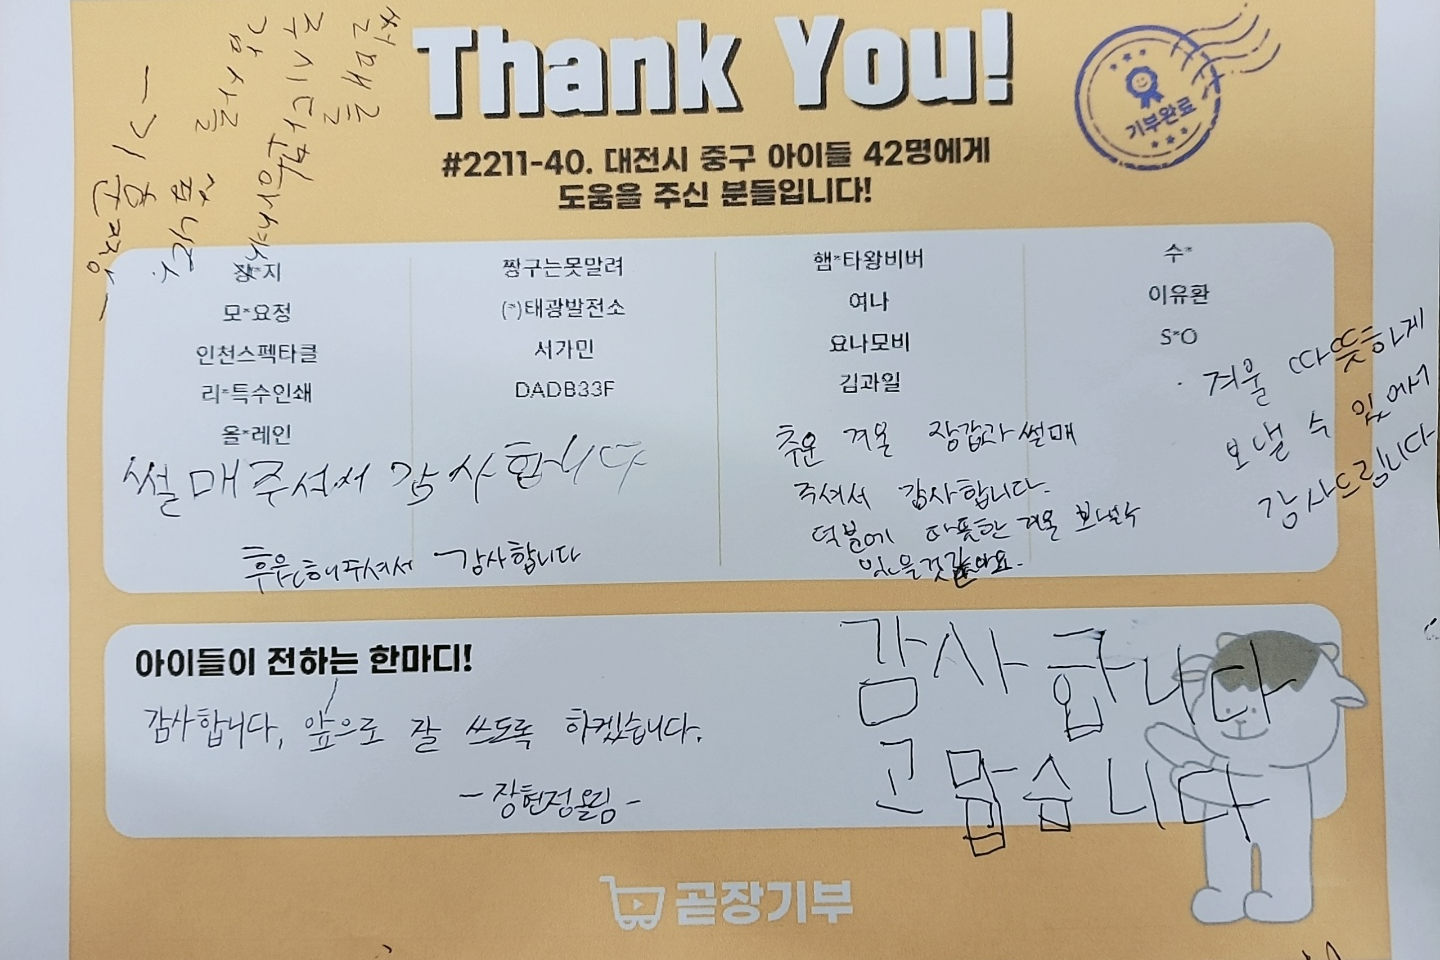 Thank You!
기부완료
#2211-40. 대전시 중구 아이들 42명에게
도움을 주신 분들입니다!
썰매를
주시다니
감사를
장*지
모*요정
인천스펙타클
리*특수인쇄
올*레인
짱구는못말려
(*)태광발전소
서가민
DADB33F
햄*타왕비버
여나
요나모비
김과일
수*
이유환
S*O
썰매 주셔서 감사합니다
후원해주셔서 감사합니다
추운 겨울 장갑과 썰매
주셔서 감사합니다.
덕분에 따뜻한 겨울 보낼수
있을것같아요.
겨울 따뜻하게
보낼 수 있어서
감사드립니다
아이들이 전하는 한마디!
감사합니다, 앞으로 잘 쓰도록 하겠습니다.
- 장현정올림 -
감사합니다
고맙습니다
곧장기부